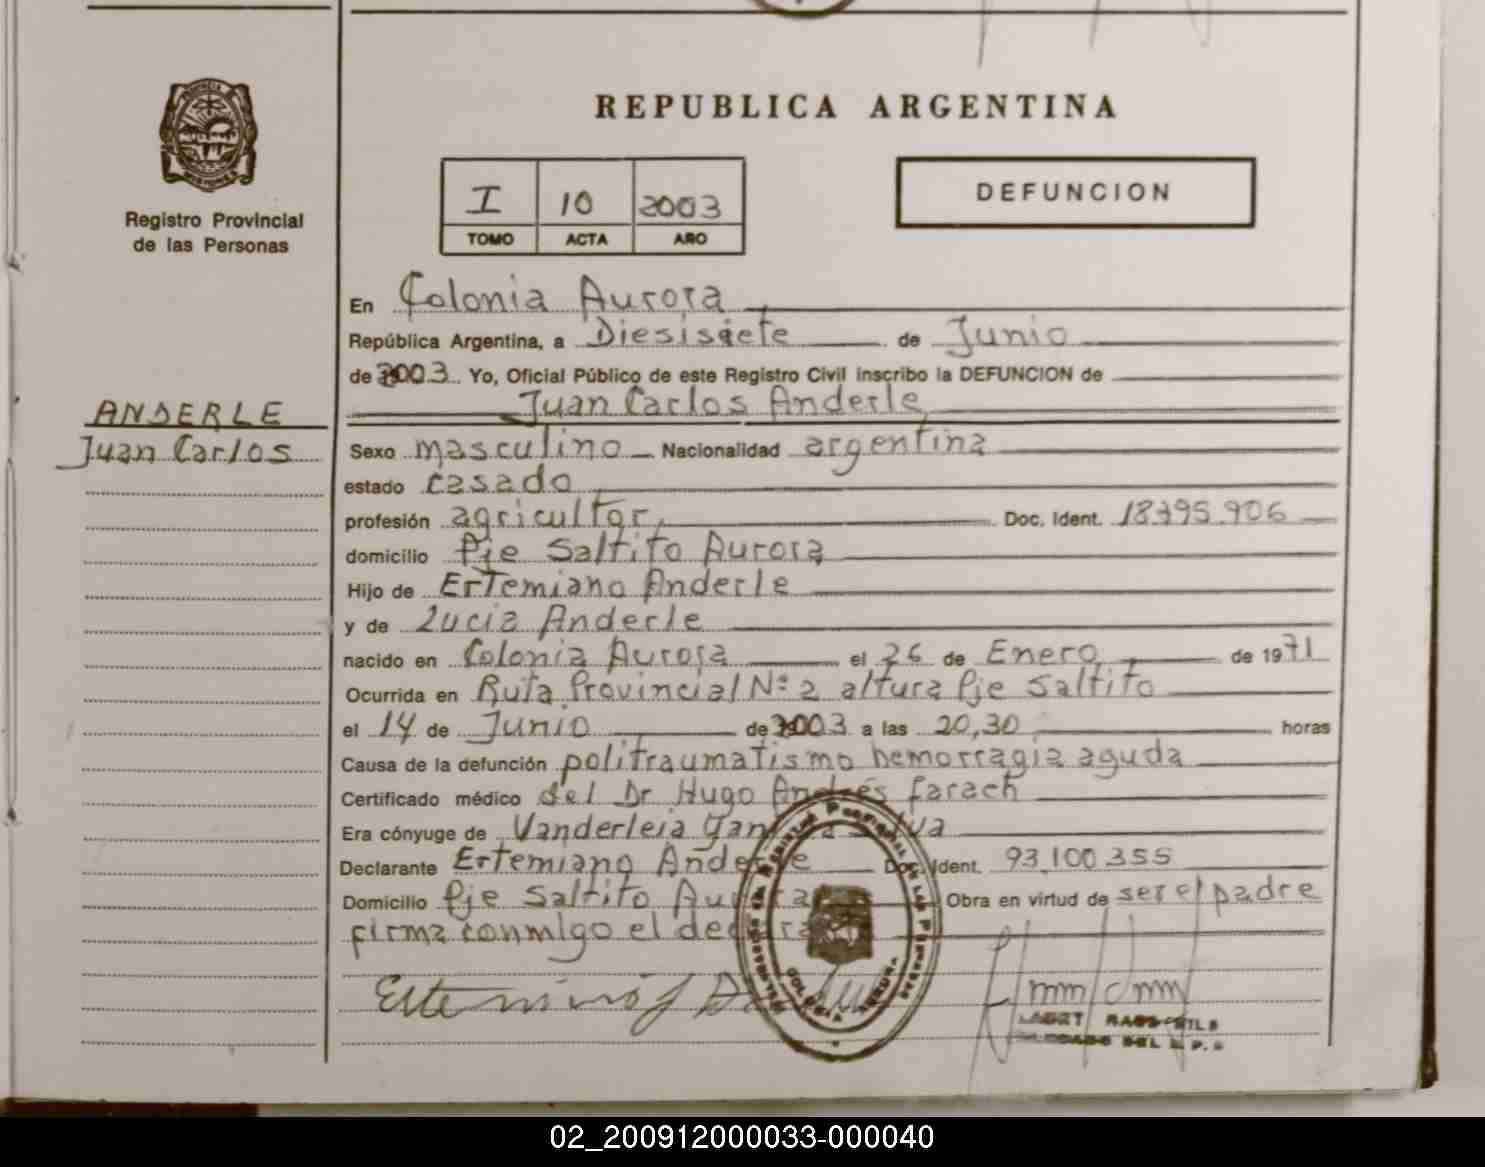 REPUBLICA ARGENTINA
Registro Provincial
de las Personas
I 10 2003
TOMO ACTA AÑO
DEFUNCION
ANDERLE
Juan Carlos
En Colonia Aurora
República Argentina, a Diesisiete de Junio
de 2003 Yo, Oficial Público de este Registro Civil inscribo la DEFUNCION de
Juan Carlos Anderle
Sexo masculino Nacionalidad argentina
estado casado
profesión agricultor, Doc. Ident. 18.795.906
domicilio Pje Saltito Aurora
Hijo de Ertemiano Anderle
y de Lucia Anderle
nacido en Colonia Aurora el 26 de Enero de 1971
Ocurrida en Ruta Provincial Nº 2 altura Pje Saltito
el 14 de Junio de 2003 a las 20,30 horas
Causa de la defunción politraumatismo hemorragia aguda
Certificado médico del Dr Hugo Andrés Farach
Era cónyuge de Vanderleia
Declarante Ertemiano Anderle Doc. Ident. 93.100.355
Domicilio Pje Saltito Aurora Obra en virtud de ser el padre
firma conmigo el
COLONIA AURORA
02_200912000033-000040